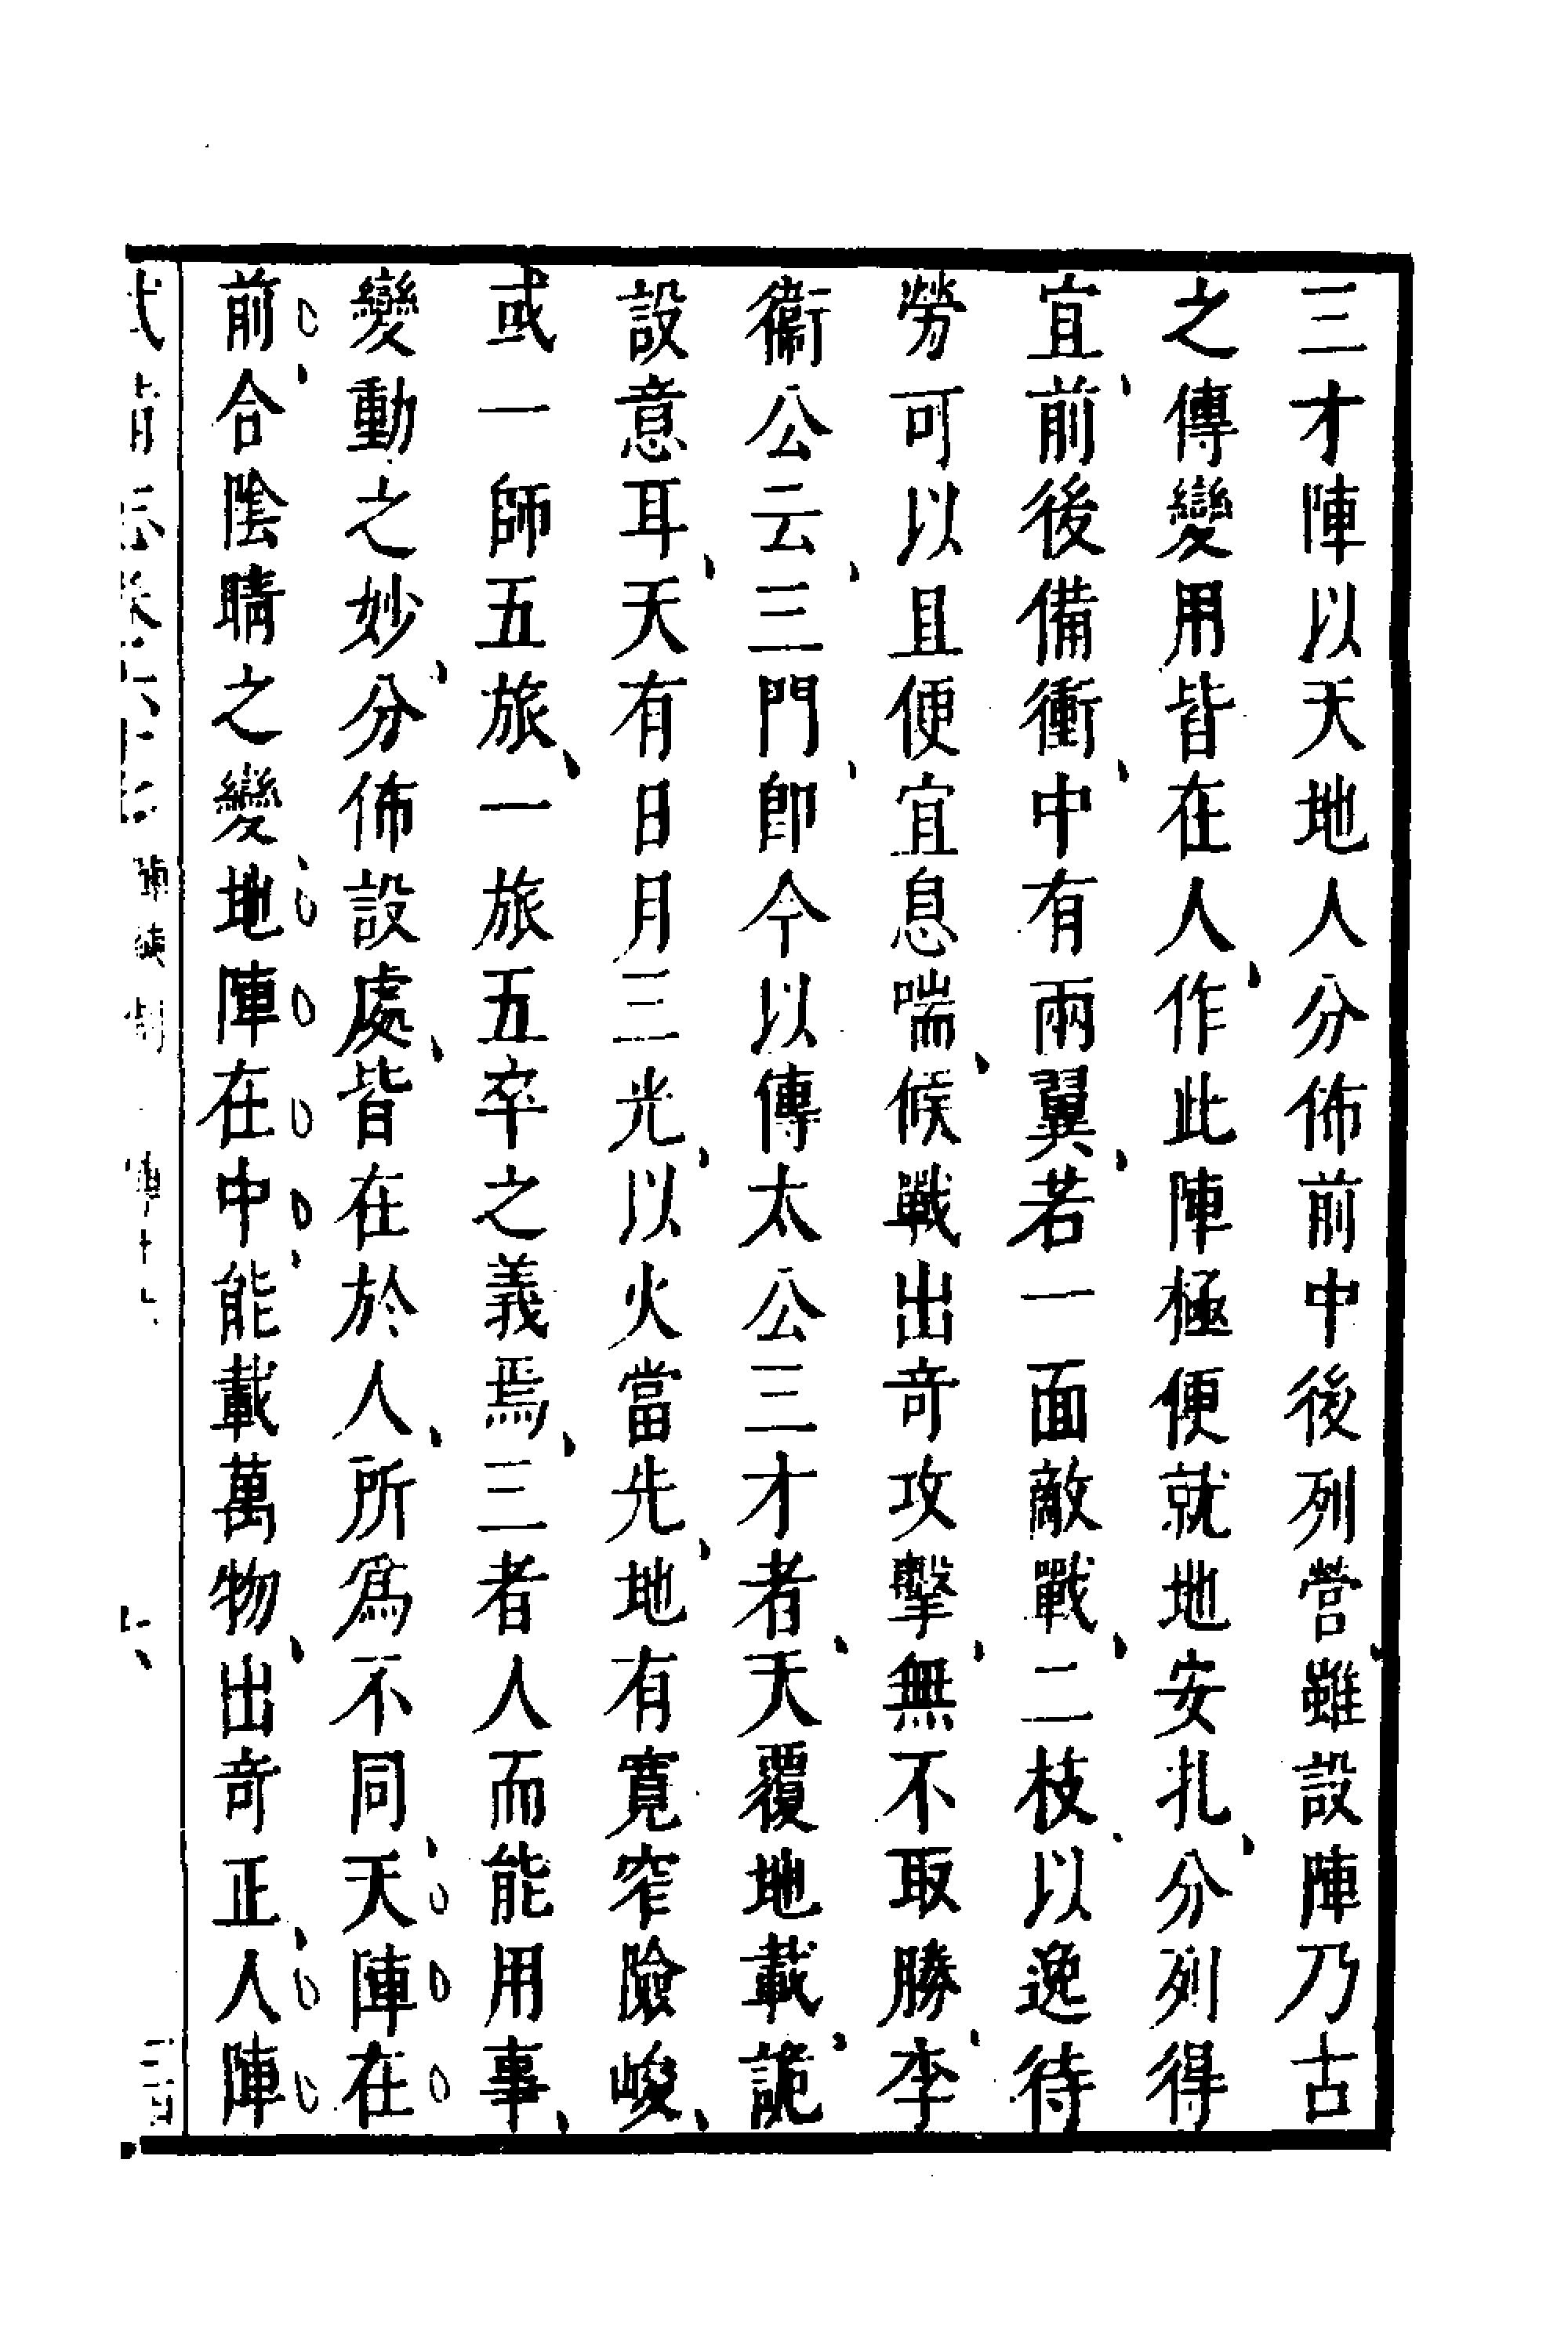 三才陣以天地人分佈前中後列營雖設陣乃古
之傳變用皆在人作此陣極便就地安扎分列得
宜前後備衝中有兩翼若一面敵戰二枝以逸待
勞可以且便宜息喘候戰出奇攻擊無不取勝李
衞公云三門即今以傳太公三才者天覆地載詭
設意耳天有日月三光以火當先地有寬窄險峻
或一師五旅一旅五卒之義焉三者人而能用事
變動之妙分佈設處皆在於人所爲不同天陣在
前合陰晴之變地陣在中能載萬物出奇正人陣